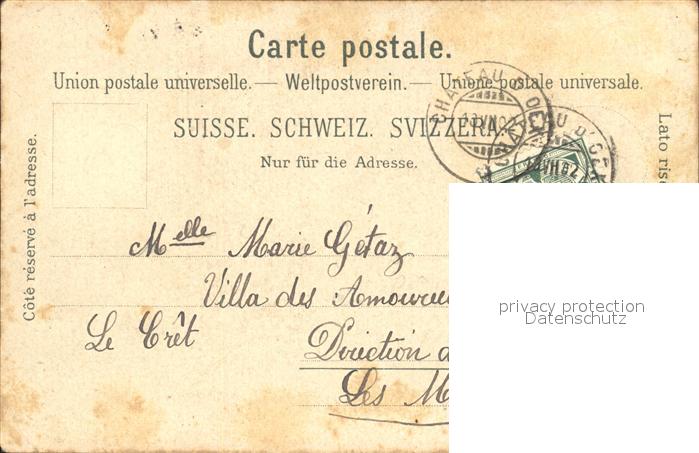 Carte postale.
Union postale universelle. — Weltpostverein. — Unione postale universale.
SUISSE. SCHWEIZ. SVIZZERA.
Nur für die Adresse.
Côté réservé à l'adresse.
Lato rise
CHATEAU D'OEX
EAU D'OEX
Melle Marie Gétaz
Villa des Amoureu
Le Crêt
Direction d
Les M
privacy protection
Datenschutz